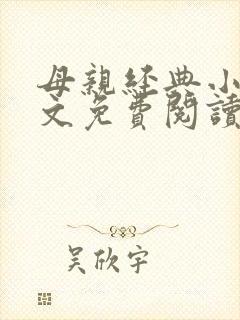 母親經典小
文免費閱讀
吴欣宇